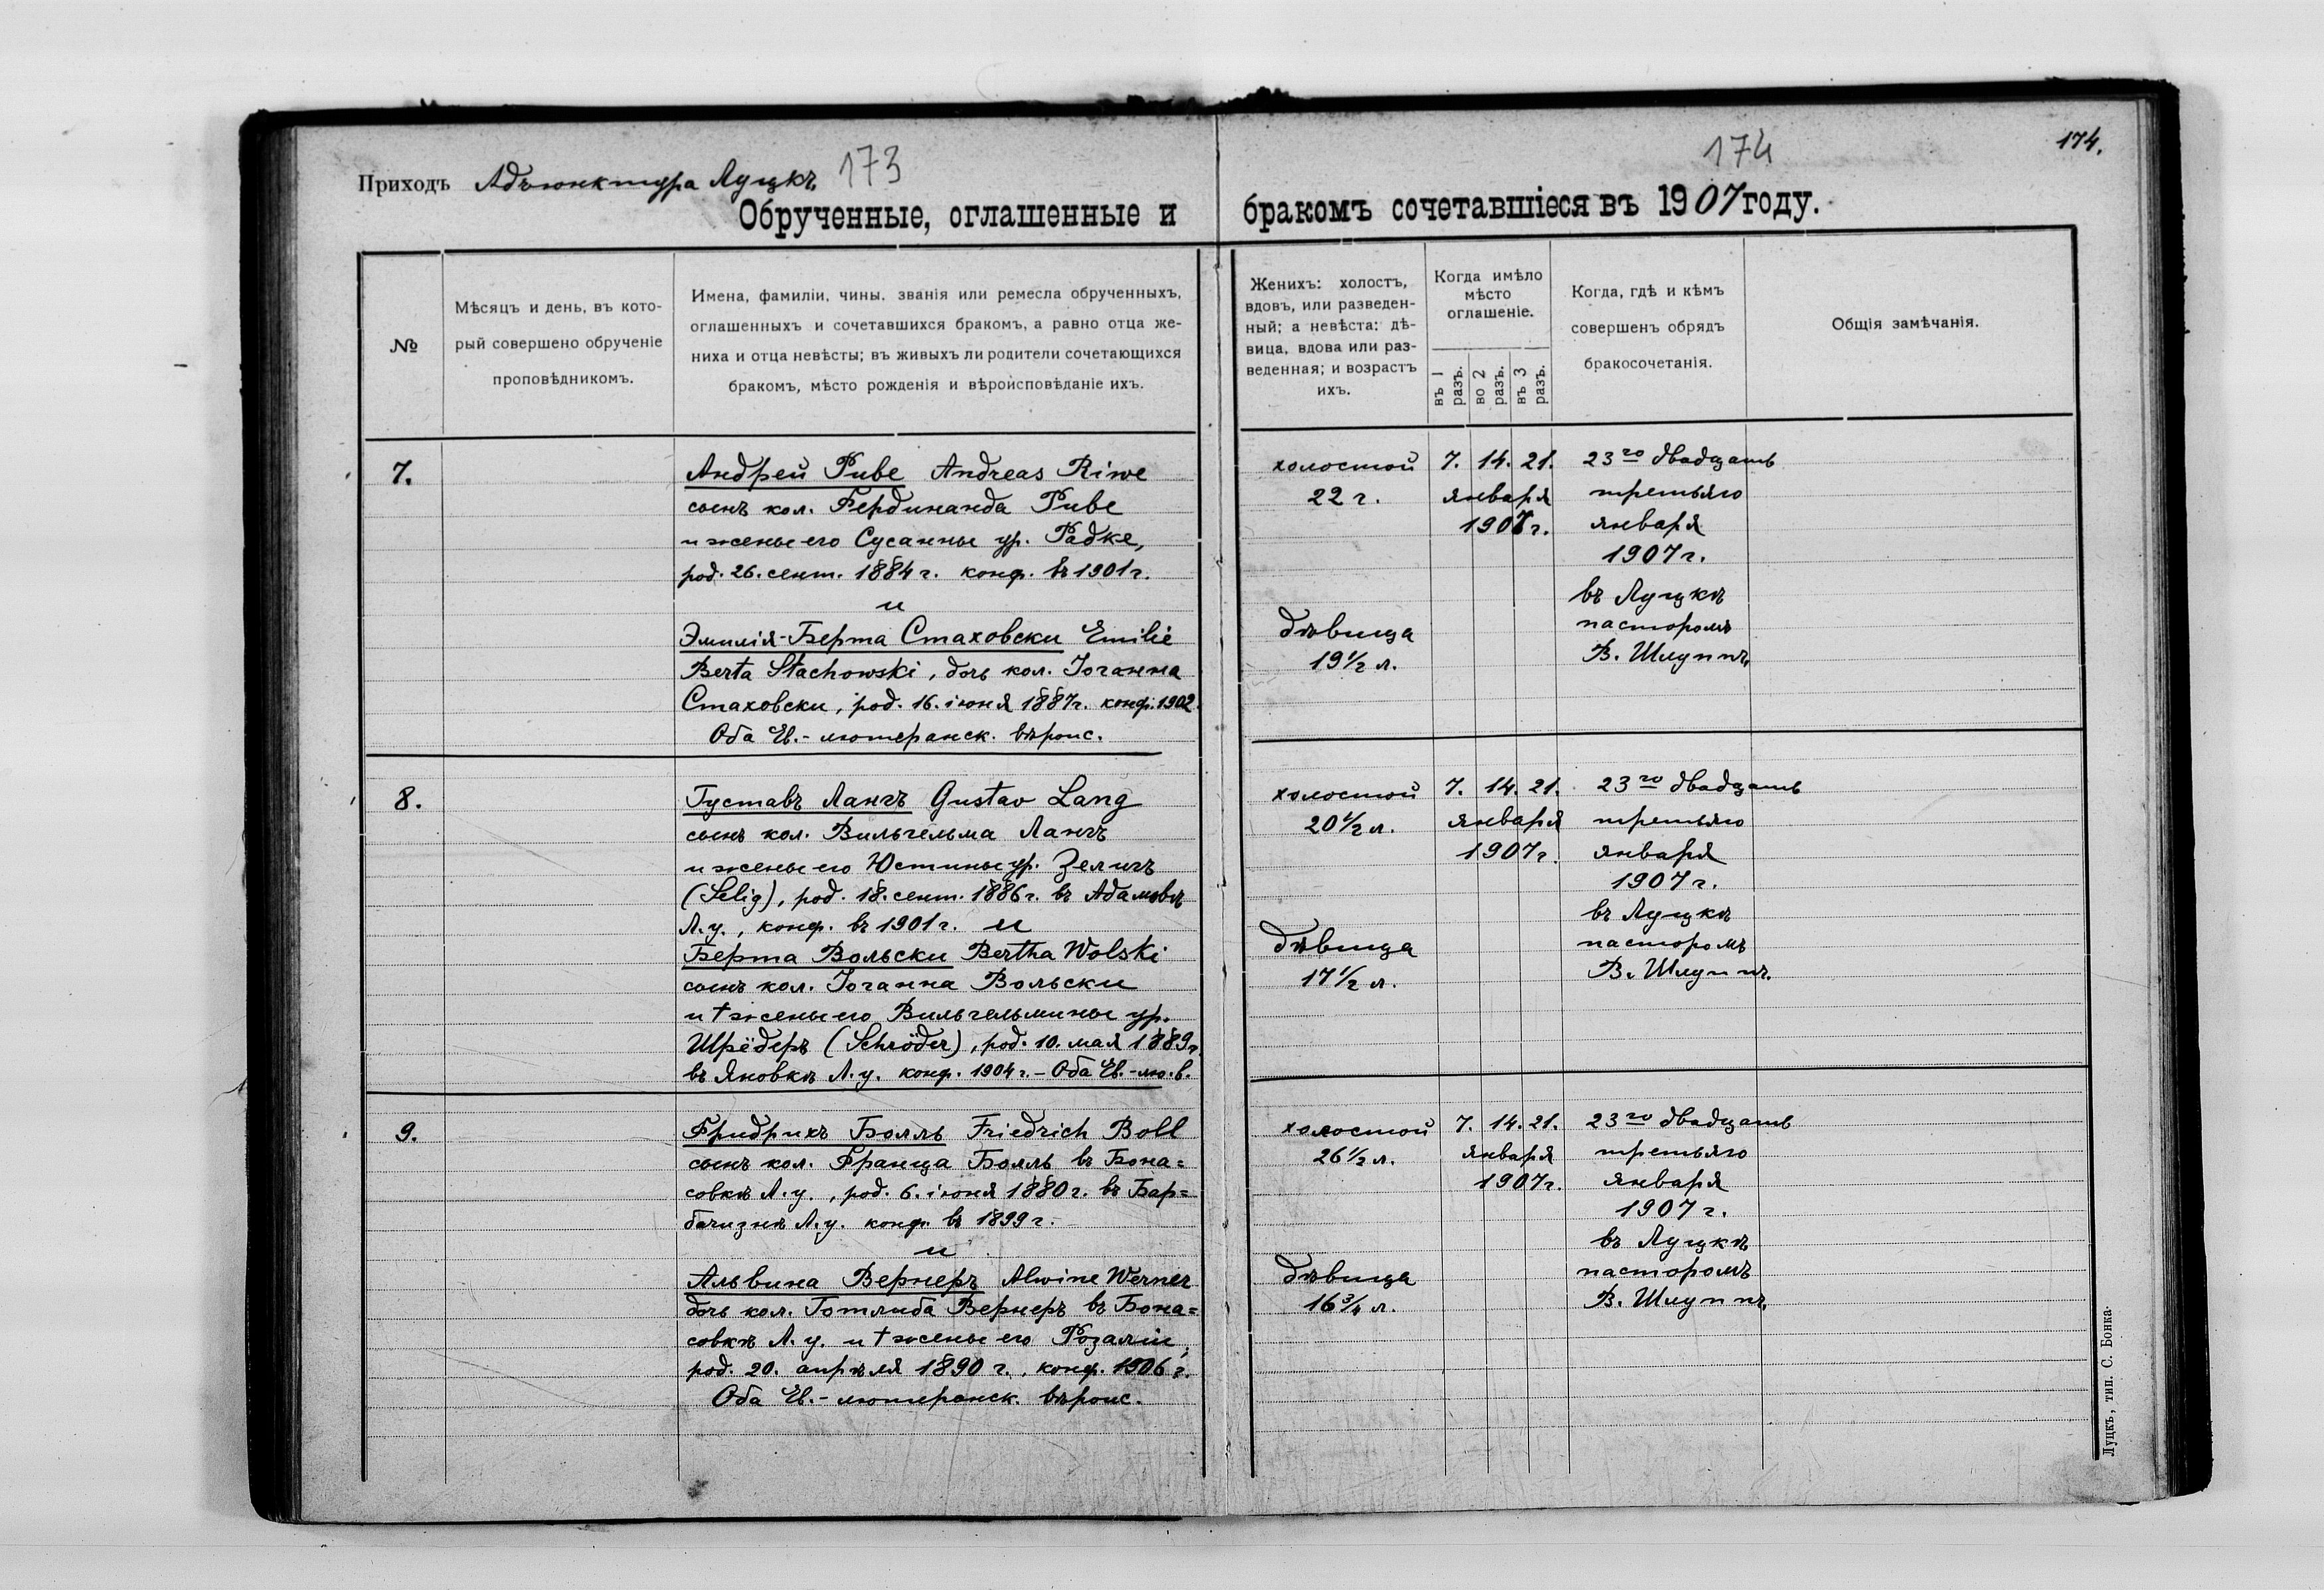 173
174
174.
Приходъ Адъюнктура Луцкъ
Обрученные, оглашенные и бракомъ сочетавшіеся въ 1907 году.
№
Мѣсяцъ и день, въ кото-
рый совершено обрученіе
проповѣдникомъ.
Имена, фамиліи, чины, званія или ремесла обрученныхъ,
оглашенныхъ и сочетавшихся бракомъ, а равно отца же-
ниха и отца невѣсты; въ живыхъ ли родители сочетающихся
бракомъ, мѣсто рожденія и вѣроисповѣданіе ихъ.
Женихъ: холостъ,
вдовъ, или разведен-
ный; а невѣста: дѣ-
вица, вдова или раз-
веденная; и возрастъ
ихъ.
Когда имѣло
мѣсто
оглашеніе.
въ 1 разъ.
во 2 разъ.
въ 3 разъ.
Когда, гдѣ и кѣмъ
совершенъ обрядъ
бракосочетанія.
Общія замѣчанія.
7.
Андрей Риве Andreas Riwe
сынъ кол. Фердинанда Риве
и жены его Сусанны ур. Радке,
род. 26. сент. 1884 г. конф. въ 1901 г.
и
Эмилія-Берта Стаховски Emilie
Berta Stachowski, дочь кол. Іоганна
Стаховски, род. 16. іюня 1887 г. конф. 1902.
Оба Ев.-лютеранск. вѣроис.
холостой
22 г.
дѣвица
19 1/2 л.
7. 14. 21.
января
1907 г.
23го двадцать
третьяго
января
1907 г.
въ Луцкѣ
пасторомъ
В. Шлуппъ.
8.
Густавъ Лангъ Gustav Lang
сынъ кол. Вильгельма Лангъ
и жены его Юстины ур. Зелигъ
(Selig), род. 18. сент. 1886 г. въ Адамовкѣ
Л. у., конф. въ 1901 г. и
Берта Вольски Bertha Wolski
сынъ кол. Іоганна Вольски
и † жены его Вильгельмины ур.
Шрёдеръ (Schröder), род. 10. мая 1889 г.
въ Яновкѣ Л. у. конф. 1904 г. – Оба Ев.-лю. в.
холостой
20 1/2 л.
дѣвица
17 1/2 л.
7. 14. 21.
января
1907 г.
23го двадцать
третьяго
января
1907 г.
въ Луцкѣ
пасторомъ
В. Шлуппъ.
9.
Фридрихъ Болль Friedrich Boll
сынъ кол. Франца Болль въ Бона=
совкѣ Л. у., род. 6. іюня 1880 г. въ Бар=
бачизнѣ Л. у. конф. въ 1899 г.
и
Альвина Вернеръ Alwine Werner
дочь кол. Готлиба Вернеръ въ Бона=
совкѣ Л. у. и † жены его Розаліи,
род. 20. апрѣля 1890 г., конф. 1906 г.
Оба Ев.-лютеранск. вѣроис.
холостой
26 1/2 л.
дѣвица
16 3/4 л.
7. 14. 21.
января
1907 г.
23го двадцать
третьяго
января
1907 г.
въ Луцкѣ
пасторомъ
В. Шлуппъ.
Луцкъ, тип. С. Бонка.